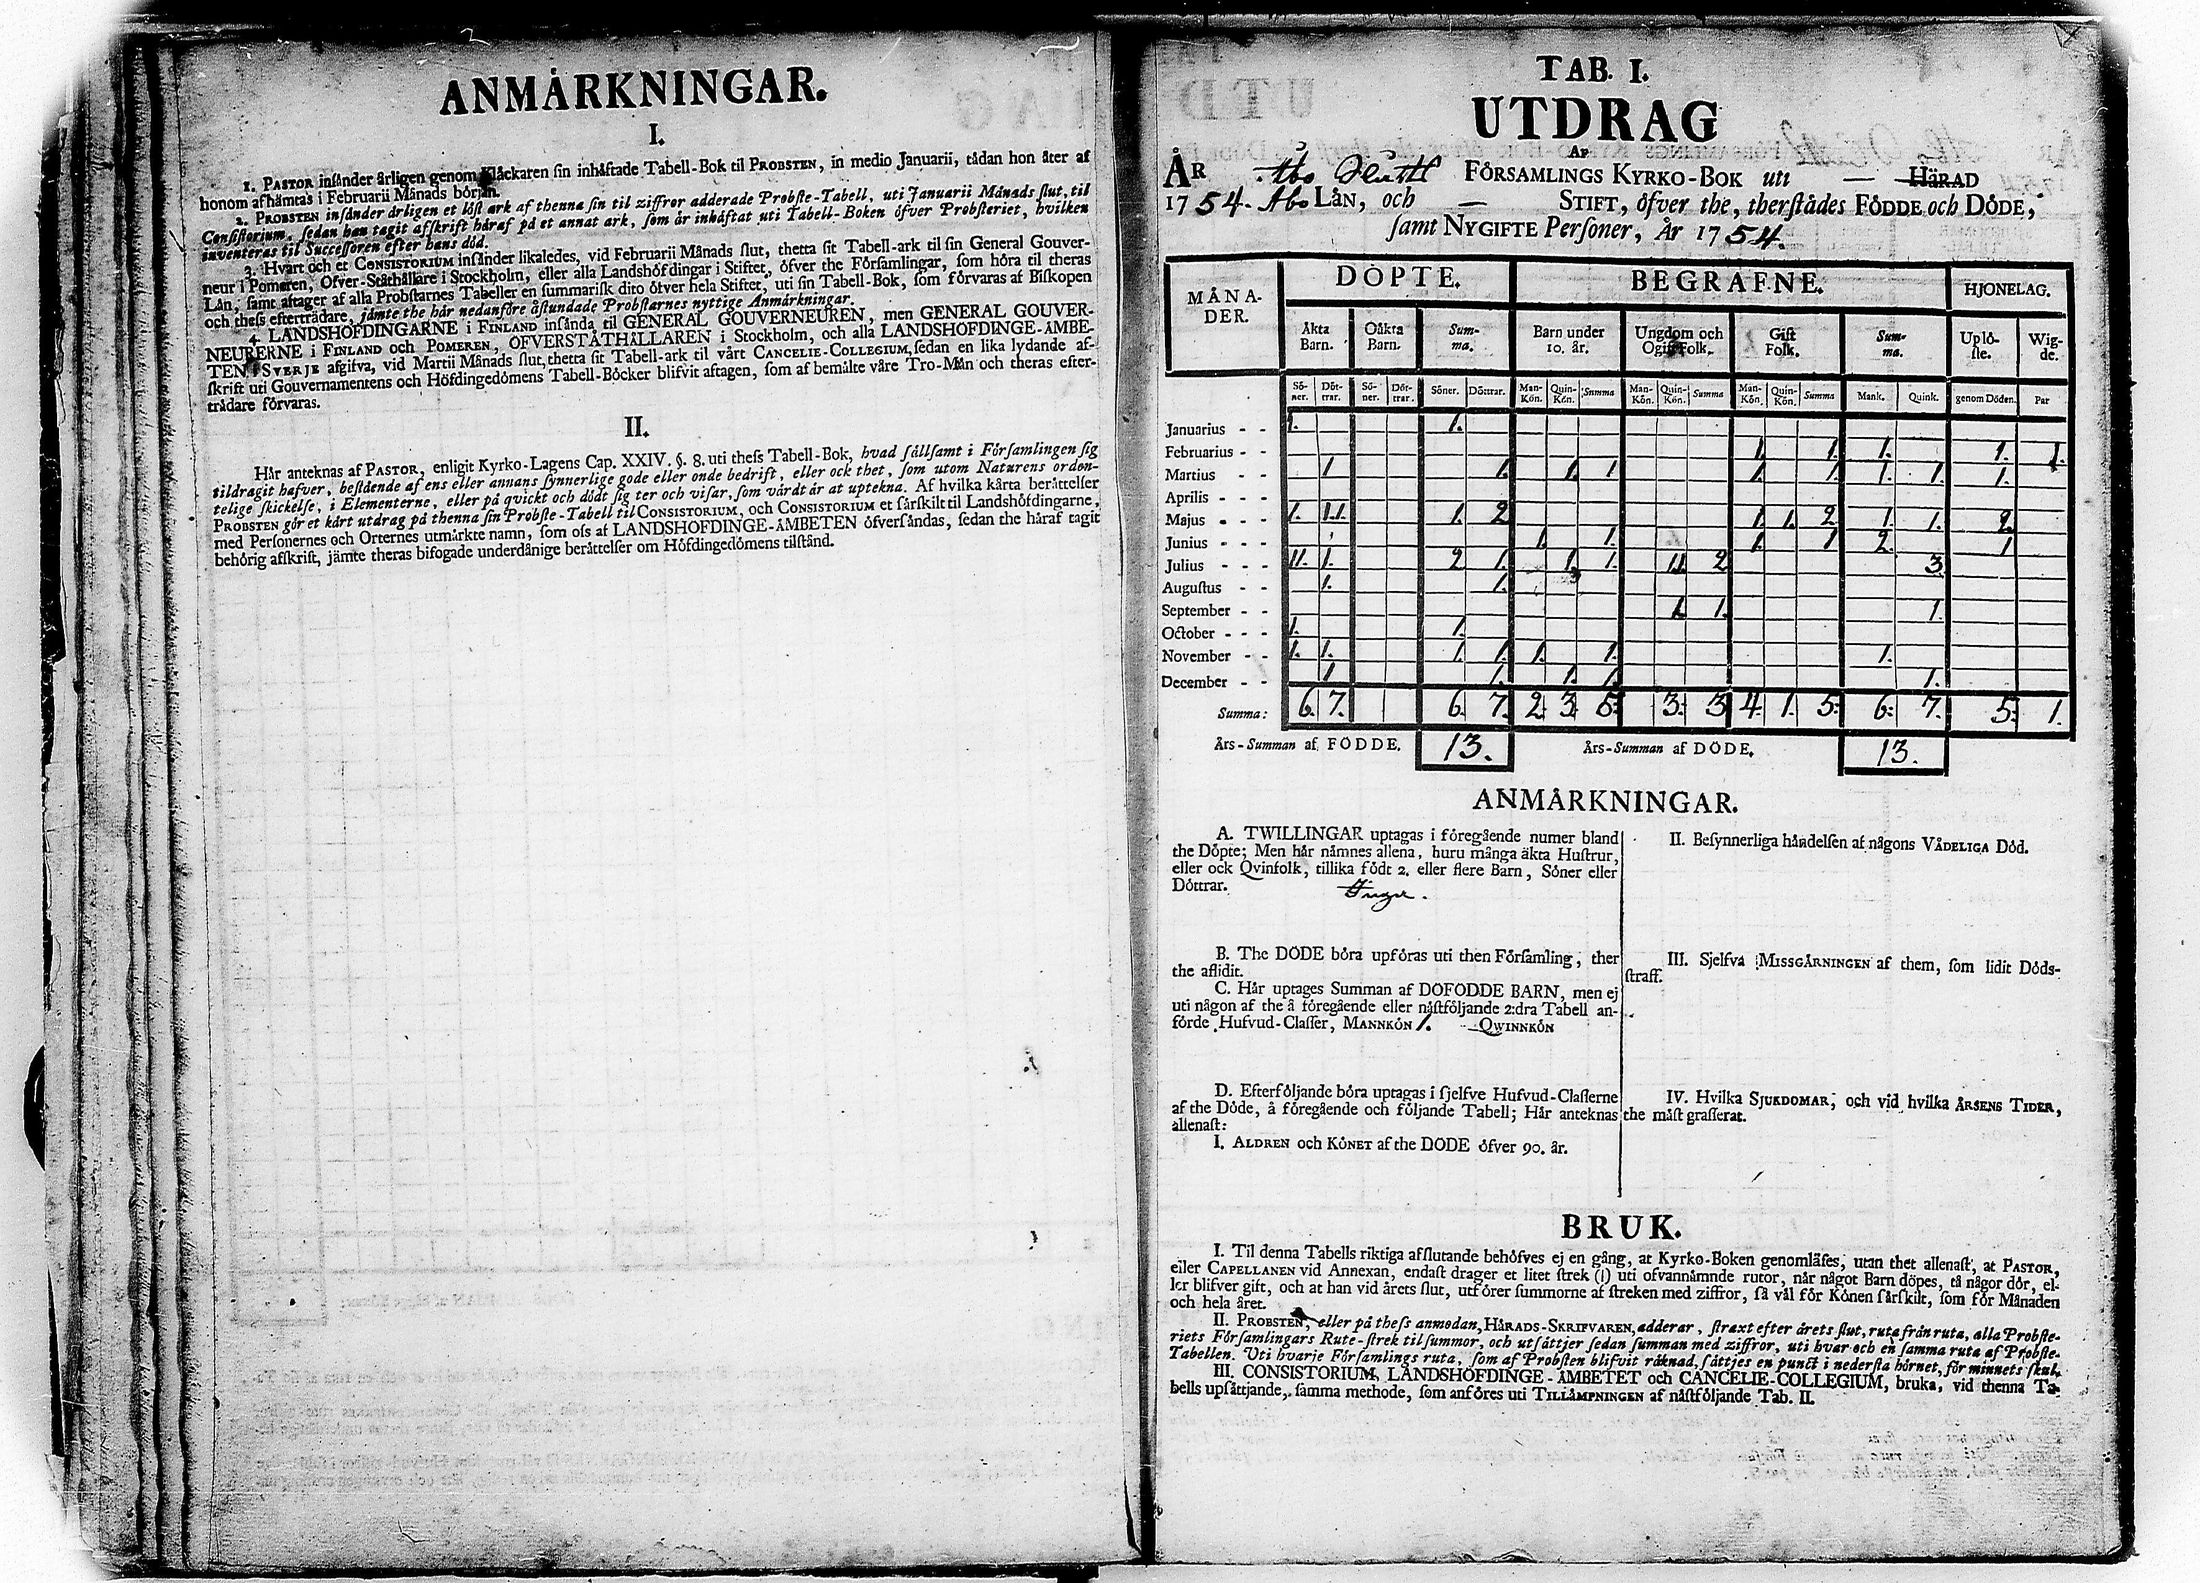 ANMÅRKNINGAR.
I.
1. PASTOR insånder årligen genom Klåckaren sin inhåftade Tabell-Bok til PROBSTEN, in medio Januarii, tådan hon åter af
honom afhåmtas i Februarii Månads början.
2. PROBSTEN insånder årligen et löst ark af thenna sin til ziffror adderade Probste-Tabell, uti Januarii Månads slut, til
Consistorium, sedan han tagit afskrift håraf på et annat ark, som år inhåftat uti Tabell-Boken öfver Probsteriet, hvilken
inventeras til Successoren efter hans död.
3. Hvart och et CONSISTORIUM insånder likaledes, vid Februarii Månads slut, thetta sit Tabell-ark til sin General Gouver-
neur i Pomeren, Öfver-Ståthållare i Stockholm, eller alla Landshöfdingar i Stiftet, öfver the Församlingar, som höra til theras
Lån, samt aftager af alla Probstarnes Tabeller en summarisk dito öfver hela Stiftet, uti sin Tabell-Bok, som förvaras af Biskopen
och thess eftertrådare, jåmte the hår nedanföre åstundade Probstarnes nyttige Anmårkningar.
4. LANDSHÖFDINGARNE i FINLAND insånda til GENERAL GOUVERNEUREN, men GENERAL GOUVER-
NEURERNE i FINLAND och POMEREN, ÖFVERSTÅTHÅLLAREN i Stockholm, och alla LANDSHÖFDINGE-ÅMBE-
TEN i SVERJE afgifva, vid Martii Månads slut, thetta sit Tabell-ark til vårt CANCELIE-COLLEGIUM, sedan en lika lydande af-
skrift uti Gouvernamentens och Höfdingedömens Tabell-Böcker blifvit aftagen, som af bemålte våre Tro-Mån och theras efter-
trådare förvaras.
II.
Hår anteknas af PASTOR, enligit Kyrko-Lagens Cap. XXIV. §. 8. uti thess Tabell-Bok, hvad sållsamt i Församlingen sig
tildragit hafver, bestående af ens eller annans synnerlige gode eller onde bedrift, eller ock thet, som utom Naturens orden-
telige skickelse, i Elementerne, eller på qvickt och dödt sig ter och visar, som vårdt år at uptekna. Af hvilka kårta beråttelser
PROBSTEN gör et kårt utdrag på thenna sin Probste-Tabell til CONSISTORIUM, och CONSISTORIUM et sårskilt til Landshöfdingarne,
med Personernes och Orternes utmårkte namn, som oss af LANDSHÖFDINGE-ÅMBETEN öfversåndas, sedan the håraf tagit
behörig afskrift, jåmte theras bifogade underdånige beråttelser om Höfdingedömens tilstånd.
TAB. I.
UTDRAG
AF
ÅR Åbo Slotts FÖRSAMLINGS KYRKO-BOK uti — HÅRAD
1754. Åbo LÅN, och — STIFT, öfver the, therstådes FÖDDE och DÖDE,
samt NYGIFTE Personer, År 1754.
MÅNA-DER. DÖPTE. BEGRAFNE. HJONELAG.
Åkta Barn. Oåkta Barn. Summa. Barn under 10. år. Ungdom och Ogift Folk. Gift Folk. Summa. Uplö-ste. Wig-de.
Sö-ner. Döt-trar. Sö-ner. Döt-trar. Söner. Döttrar. Man-Kön. Quin-Kön. Summa Man-Kön. Quin-Kön. Summa Man-Kön. Quin-Kön. Summa Mank. Quink. genom Döden. Par
Januarius - - 1. 1.
Februarius - - 1. 1. 1. 1. 1.
Martius - - 1 1. 1. 1 1. 1. 1. 1. 1.
Aprilis - - -
Majus - - - 1. 1.1. 1. 2 1. 1. 2 1. 1. 2.
Junius - - - 1. 1. 1. 1 2. 1
Julius - - - 11. 1. 2 1. 1. 1. 11. 2 3
Augustus - - 1. 1.
September - - 1. 1. 1.
October - - - 1. 1.
November - - 1. 1. 1. 1. 1. 1. 1.
December - - 1 1. 1. 1. 1.
Summa: 6. 7. 6. 7. 2. 3. 5. 3. 3 4. 1. 5. 6. 7. 5. 1.
Års-Summan af FÖDDE. 13. Års-Summan af DÖDE. 13.
ANMÅRKNINGAR.
A. TWILLINGAR uptagas i föregående numer bland
the Döpte; Men hår nåmnes allena, huru många åkta Hustrur,
eller ock Qvinfolk, tillika födt 2. eller flere Barn, Söner eller
Döttrar. Inga.
B. The DÖDE böra upföras uti then Församling, ther
the aflidit.
C. Hår uptages Summan af DÖFÖDDE BARN, men ej
uti någon af the å föregående eller nåstföljande 2:dra Tabell an-
förde Hufvud-Classer, MANNKÖN 1. — QWINNKÖN
D. Efterföljande böra uptagas i sjelfve Hufvud-Classerne
af the Döde, å föregående och följande Tabell; Hår anteknas
allenast:
I. ALDREN och KÖNET af the DÖDE öfver 90. år.
II. Besynnerliga håndelsen af någons VÅDELIGA Död.
III. Sjelfva MISSGÅRNINGEN af them, som lidit Döds-
straff.
IV. Hvilka SJUKDOMAR, och vid hvilka ÅRSENS TIDER,
the måst grasserat.
BRUK.
I. Til denna Tabells riktiga afslutande behöfves ej en gång, at Kyrko-Boken genomlåses, utan thet allenast, at PASTOR,
eller CAPELLANEN vid Annexan, endast drager et litet strek (|) uti ofvannåmnde rutor, når något Barn döpes, tå någor dör, el-
ler blifver gift, och at han vid årets slut, utförer summorne af streken med ziffror, så vål för Könen sårskilt, som för Månaden
och hela året.
II. PROBSTEN, eller på thess anmodan, HÅRADS-SKRIFVAREN, adderar, straxt efter årets slut, ruta från ruta, alla Probste-
riets Församlingars Rute-strek til summor, och utsåttjer sedan summan med ziffror, uti hvar och en samma ruta af Probste-
Tabellen. Uti hvarje Församlings ruta, som af Probsten blifvit råknad, såttjes en punct i nedersta hörnet, för minnets skul.
III. CONSISTORIUM, LANDSHÖFDINGE-ÅMBETET och CANCELIE-COLLEGIUM, bruka, vid thenna Ta-
bells upsåttjande, samma methode, som anföres uti TILLÅMPNINGEN af nåstföljande Tab. II.